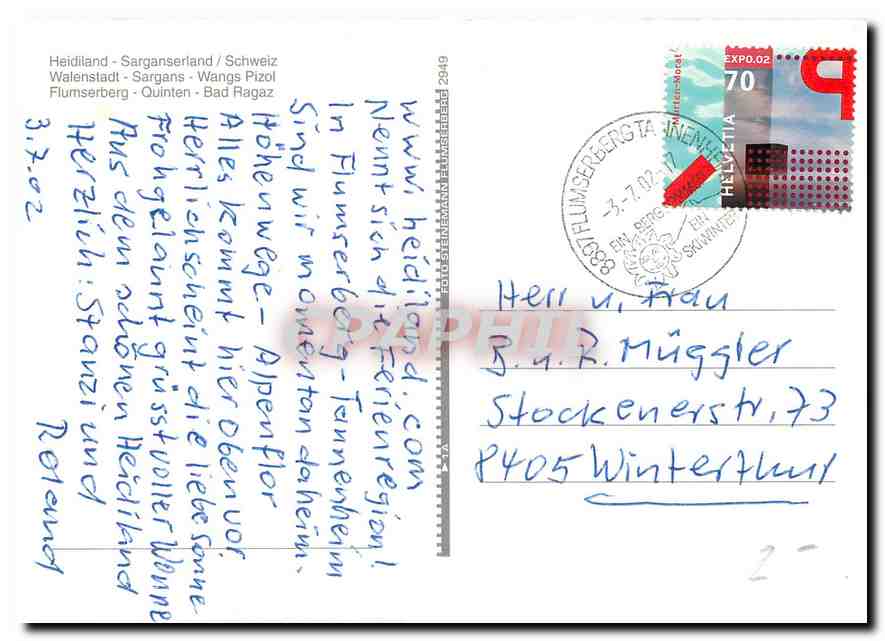 Heidiland - Sarganserland / Schweiz
Walenstadt - Sargans - Wangs Pizol
Flumserberg - Quinten - Bad Ragaz
www.heidiland.com
Nennt sich die Ferienregion!
In Flumserberg-Tannenheim
Sind wir momentan daheim.
Höhenwege - Alpenflor
Alles kommt hier oben vor
Herrlich scheint die liebe Sonne
Frohgelaunt grüsst voller Wonne
Aus dem schönen Heidiland
Herzlich: Stanzi und
Roland
3.7.02
FOTO STEINEMANN FLUMSERBERG 2949
TA
CPAPHIL
Murten-Morat
EXPO.02
70
HELVETIA
8897 FLUMSERBERG TANNENHEIM
-3.-7.02-17
EIN BERG
EIN
SKIWINTER
Herr u. Frau
B. u. R. Müggler
Stockenerstr. 73
8405 Winterthur
2 -